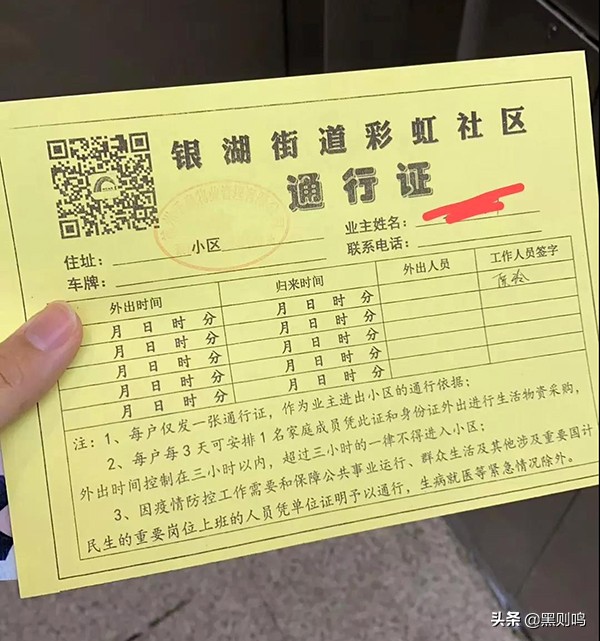 银湖街道彩虹社区
通行证
住址：________小区 业主姓名：________
车牌：________ 联系电话：________
外出时间 归来时间 外出人员 工作人员签字
月 日 时 分 月 日 时 分
月 日 时 分 月 日 时 分
月 日 时 分 月 日 时 分
月 日 时 分 月 日 时 分
月 日 时 分 月 日 时 分
注：1、每户仅发一张通行证，作为业主进出小区的通行依据；
2、每户每3天可安排1名家庭成员凭此证和身份证外出进行生活物资采购，
外出时间控制在三小时以内，超过三小时的一律不得进入小区；
3、因疫情防控工作需要和保障公共事业运行、群众生活及其他涉及重要国计
民生的重要岗位上班的人员凭单位证明予以通行，生病就医等紧急情况除外。
头条 @黑则鸣